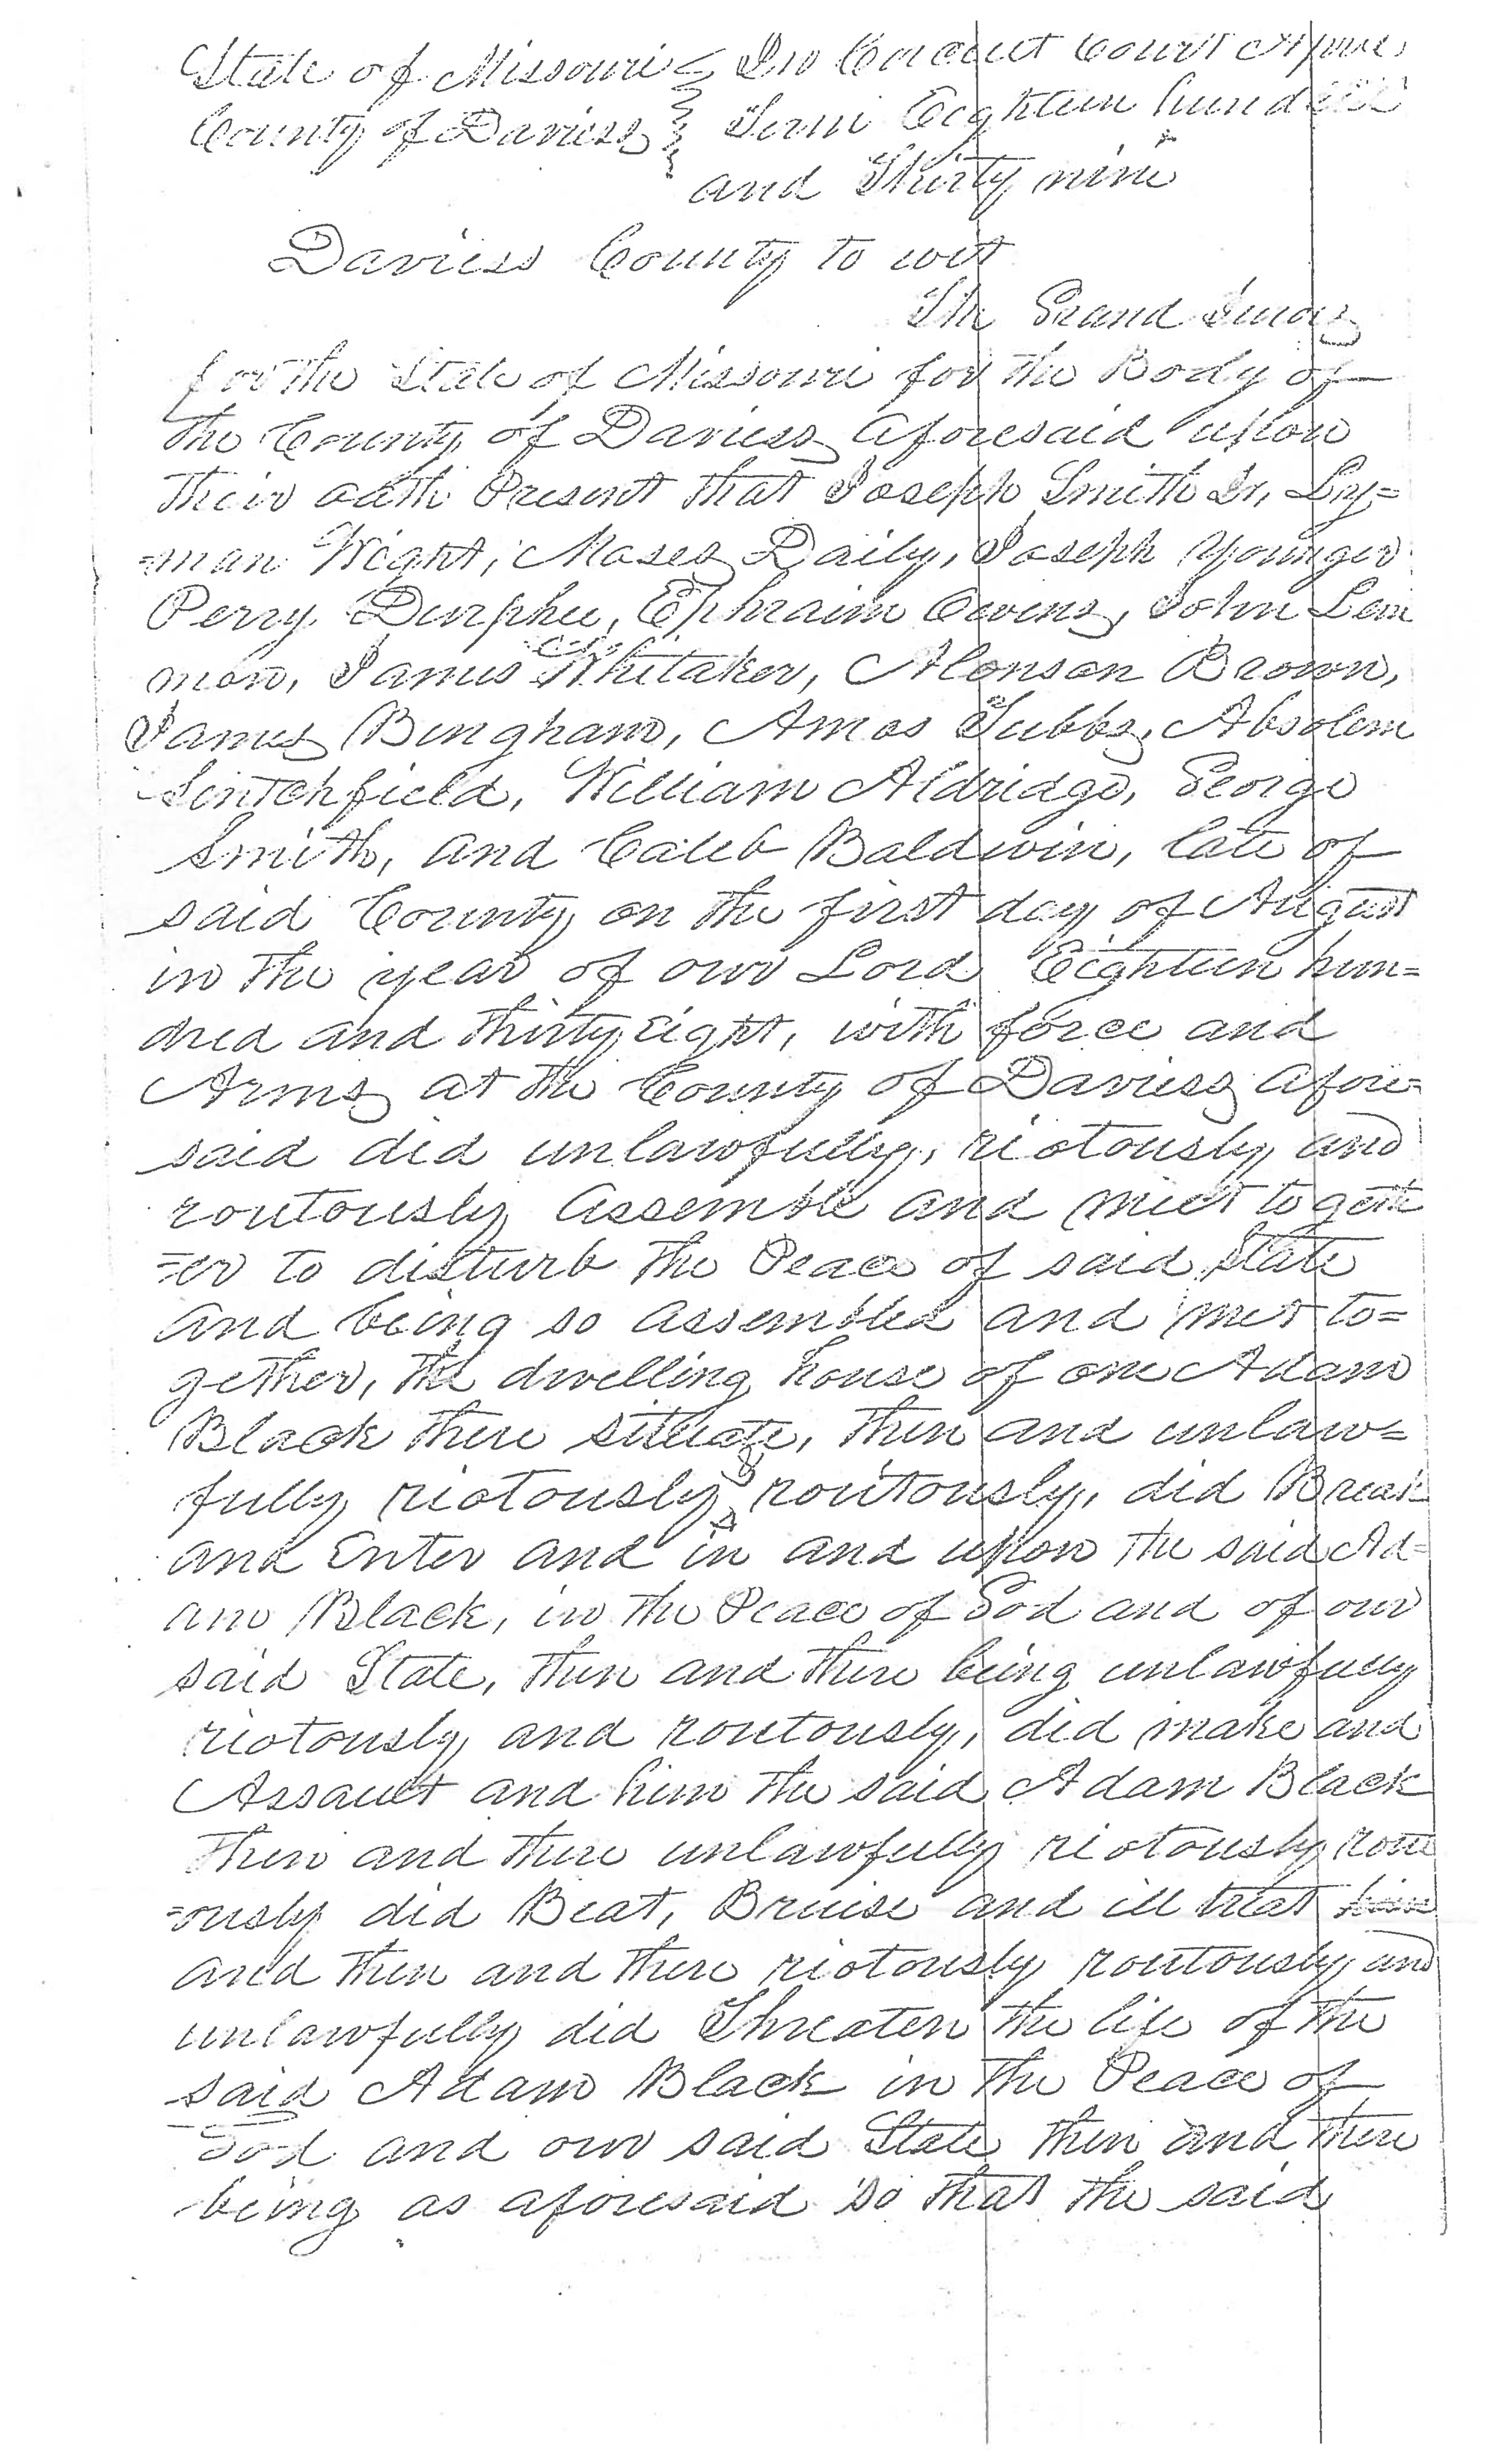 State of Missouri In Circuit Court April
County of Daviess Term Eighteen hundred
and Thirty nine
Daviess County to wit
The Grand Jurors
for the State of Missouri for the Body of
the County of Daviess aforesaid upon
their oath Present that Joseph Smith Jr, Ly=
=man Wight, Moses Daily, Joseph Younger
Perry Durphee, Ephraim Owens, John Lem
mon, James Whitaker, Alonson Brown,
James Bingham, Amos Tubbs, Absolem
Scritchfield, William Aldridge, George
Smith, and Caleb Baldwin, late of
said County on the first day of August
in the year of our Lord Eighteen hun=
dred and thirty eight, with force and
Arms at the County of Daviess afore
said did unlawfully, riotously and
routously assemble and meet togeth
=er to disturb the Peace of said State
and being so assembled and met to=
gether, the dwelling house of one Adam
Black there situate, then and unlaw=
fully riotously & routously, did Break
and Enter and in and upon the said Ad=
am Black, in the Peace of God and of our
said State, then and there being unlawfully
riotously and routously, did make and
Assault and him the said Adam Black
then and there unlawfully riotously rout
=ously did Beat, Bruise and ill treat him
and then and there riotously routously and
unlawfully did Threaten the life of the
said Adam Black in the Peace of
God and our said State then and there
being as aforesaid so that the said